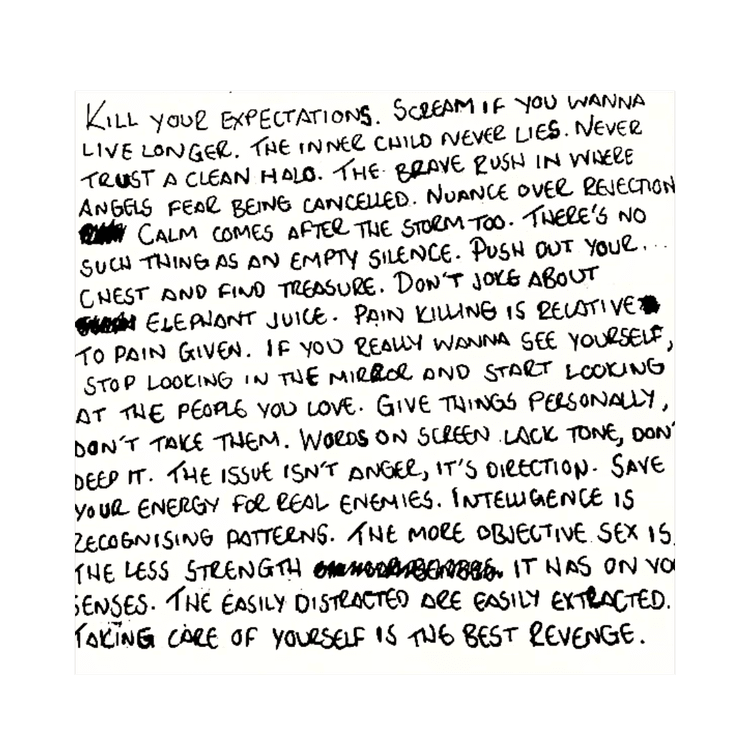 KILL YOUR EXPECTATIONS. SCREAM IF YOU WANNA
LIVE LONGER. THE INNER CHILD NEVER LIES. NEVER
TRUST A CLEAN HALO. THE BRAVE RUSH IN WHERE
ANGELS FEAR BEING CANCELLED. NUANCE OVER REJECTION
CALM COMES AFTER THE STORM TOO. THERE'S NO
SUCH THING AS AN EMPTY SILENCE. PUSH OUT YOUR...
CHEST AND FIND TREASURE. DON'T JOKE ABOUT
ELEPHANT JUICE. PAIN KILLING IS RELATIVE
TO PAIN GIVEN. IF YOU REALLY WANNA SEE YOURSELF,
STOP LOOKING IN THE MIRROR AND START LOOKING
AT THE PEOPLE YOU LOVE. GIVE THINGS PERSONALLY,
DON'T TAKE THEM. WORDS ON SCREEN LACK TONE, DON'
DEEP IT. THE ISSUE ISN'T ANGER, IT'S DIRECTION. SAVE
YOUR ENERGY FOR REAL ENEMIES. INTELLIGENCE IS
RECOGNISING PATTERNS. THE MORE OBJECTIVE SEX IS
THE LESS STRENGTH IT HAS ON YO
SENSES. THE EASILY DISTRACTED ARE EASILY EXTRACTED.
TAKING CARE OF YOURSELF IS THE BEST REVENGE.